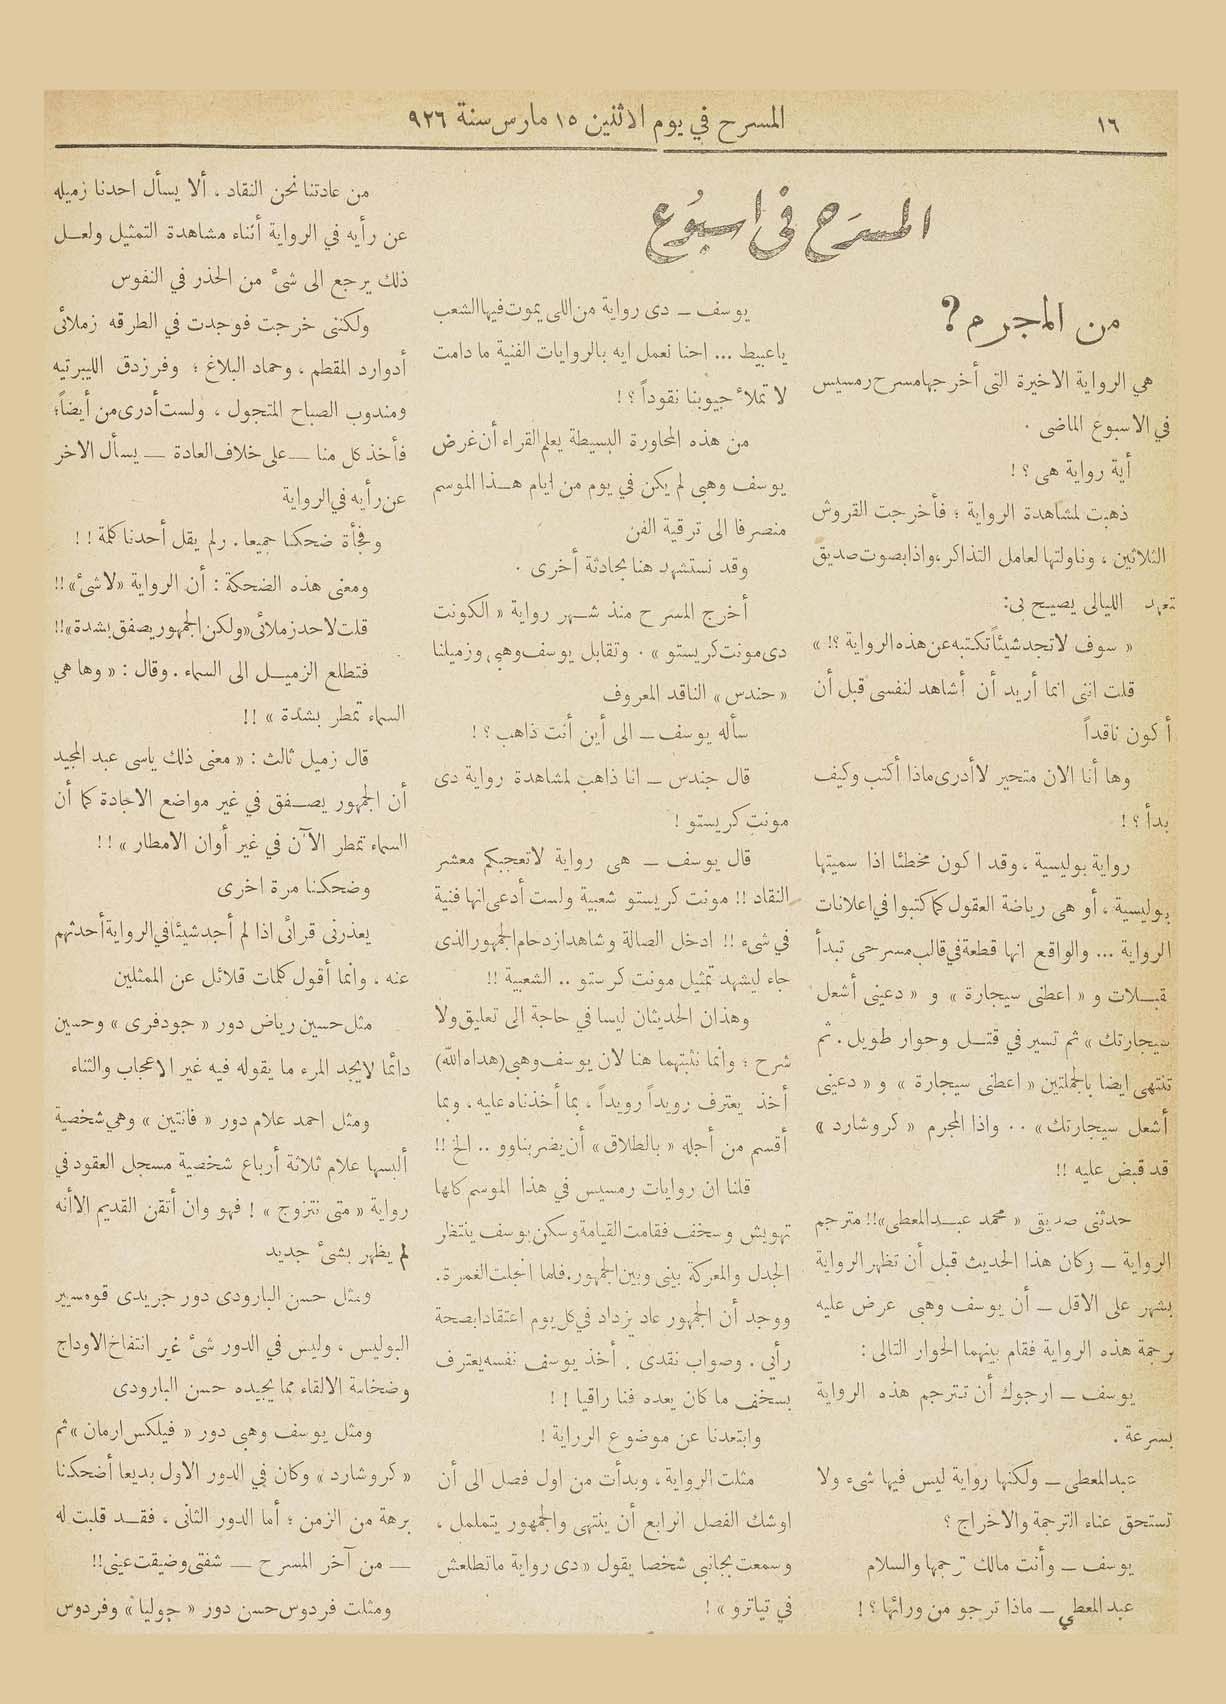 ١٦
المسرح في يوم الاثنين ١٥ مارس سنة ٩٢٦
المسرح في اسبوع
من المجرم ?
هي الرواية الاخيرة التى أخرجها مسرح رمسيس
في الاسبوع الماضى .
أية رواية هى ؟ !
ذهبت لمشاهدة الرواية ؛ فأخرجت القروش
الثلاثين ، وناولتها لعامل التذاكر ، واذا بصوت صديق
تعهد الليالى يصيح بى :
« سوف لا تجد شيئاً تكتبه عن هذه الرواية ؟! »
قلت اننى انما أريد أن أشاهد لنفسى قبل أن
أكون ناقداً
وها أنا الان متحير لا أدرى ماذا أكتب وكيف
بدأ ؟ !
رواية بوليسية ، وقد اكون مخطئا اذا سميتها
بوليسية ، أو هى رياضة العقول كما كتبوا في اعلانات
الرواية ... والواقع انها قطعة في قالب مسرحى تبدأ
قبلات و « اعطنى سيجارة » و « دعينى أشعل
سيجارتك » ثم تسير في قتل وحوار طويل . ثم
تنتهى ايضا بالجملتين « اعطنى سيجارة » و « دعينى
أشعل سيجارتك » .. واذا المجرم « كروشارد »
قد قبض عليه !!
حدثنى صديقى « محمد عبد المعطى » !! مترجم
الرواية — وكان هذا الحديث قبل أن تظهر الرواية
بشهر على الاقل — أن يوسف وهبى عرض عليه
رجمة هذه الرواية فقام بينهما الحوار التالى :
يوسف — ارجوك أن تترجم هذه الرواية
بسرعة .
عبد المعطى — ولكنها رواية ليس فيها شىء ولا
تستحق عناء الترجمة والاخراج ؟
يوسف — وأنت مالك ترجمها والسلام
عبد المعطي — ماذا ترجو من ورائها ؟ !
يوسف — دى رواية من اللى يموت فيها الشعب
ياعبيط ... احنا نعمل ايه بالروايات الفنية ما دامت
لا تملأ جيوبنا نقوداً ؟ !
من هذه المحاورة البسيطة يعلم القراء أن غرض
يوسف وهبى لم يكن في يوم من ايام هذا الموسم
منصرفا الى ترقية الفن
وقد نستشهد هنا بحادثة أخرى .
أخرج المسرح منذ شهر رواية « الكونت
دى مونت كريستو » . وتقابل يوسف وهبى وزميلنا
« حندس » الناقد المعروف
سأله يوسف — الى أين أنت ذاهب ؟ !
قال جندس — انا ذاهب لمشاهدة رواية دى
مونت كريستو !
قال يوسف — هى رواية لا تعجبكم معشر
النقاد !! مونت كريستو شعبية ولست أدعى انها فنية
في شىء !! ادخل الصالة وشاهد ازدحام الجمهور الذى
جاء ليشهد تمثيل مونت كرستو .. الشعبية !!
وهذان الحديثان ليسا في حاجة الى تعليق ولا
شرح ؛ وانما نثبتهما هنا لان يوسف وهبى ( هداه الله )
أخذ يعترف رويداً رويداً ، بما أخذناه عليه ، وبما
أقسم من أجله « بالطلاق » أن يضربنا وو .. الخ !!
قلنا ان روايات رمسيس في هذا الموسم كلها
تهويش وسخف فقامت القيامة وسكن يوسف ينتظر
الجدل والمعركة بينى وبين الجمهور . فلما انجلت الغمرة .
ووجد أن الجمهور عاد يزداد في كل يوم اعتقادا بصحة
رأيي . وصواب نقدى . أخذ يوسف نفسه يعترف
بسخف ما كان يعده فنا راقيا ! !
وابتعدنا عن موضوع الرراية !
مثلت الرواية ، وبدأت من اول فصل الى أن
اوشك الفصل الرابع أن ينتهى والجمهور يتململ ،
وسمعت بجانبي شخصا يقول « دى رواية ماتطلعش
في تياترو » !
من عادتنا نحن النقاد ، ألا يسأل احدنا زميله
عن رأيه في الرواية أثناء مشاهدة التمثيل ولعل
ذلك يرجع الى شئ من الحذر في النفوس
ولكننى خرجت فوجدت في الطرقه زملائى
أدوارد المقطم ، وحماد البلاغ ؛ وفرزدق الليبرتيه
ومندوب الصباح المتجول ، ولست أدرى من أيضاً ؛
فأخذ كل منا — على خلاف العادة — يسأل الاخر
عن رأيه في الرواية
وفجأة ضحكنا جميعا . رلم يقل أحدنا كلمة ! !
ومعنى هذه الضحكة : أن الرواية « لاشئ » !!
قلت لاحد زملائى « ولكن الجمهور يصفق بشدة » !!
فتطلع الزميل الى السماء . وقال : « وها هي
السماء تمطر بشدة » !!
قال زميل ثالث : « معنى ذلك ياسى عبد المجيد
أن الجمهور يصفق في غير مواضع الاجادة كما أن
السماء تمطر الآن في غير أوان الامطار » ! !
وضحكنا مرة اخرى
يعذرنى قرائى اذا لم أجد شيئا في الرواية أحدثهم
عنه . وانما أقول كلمات قلائل عن الممثلين
مثل حسين رياض دور « جودفرى » وحسين
دائما لايجد المرء ما يقوله فيه غير الاعجاب والثناء
ومثل احمد علام دور « فانتين » وهي شخصية
ألبسها علام ثلاثة أرباع شخصية مسجل العقود في
رواية « متى نتزوج » ! فهو وان أتقن القديم الا أنه
لم يظهر بشئ جديد
ومثل حسن البارودى دور جريدى قومسيير
البوليس ، وليس في الدور شئ غير انتفاخ الاوداج
وضخامة الالقاء مما يجيده حسن البارودى
ومثل يوسف وهبى دور « فيلكس ارمان » ثم
« كروشارد » وكان في الدور الاول بديعا أضحكنا
برهة من الزمن ؛ أما الدور الثانى ، فقد قلبت له
— من آخر المسرح — شفتى وضيقت عينى !!
ومثلت فردوس حسن دور « جوليا » وفردوس